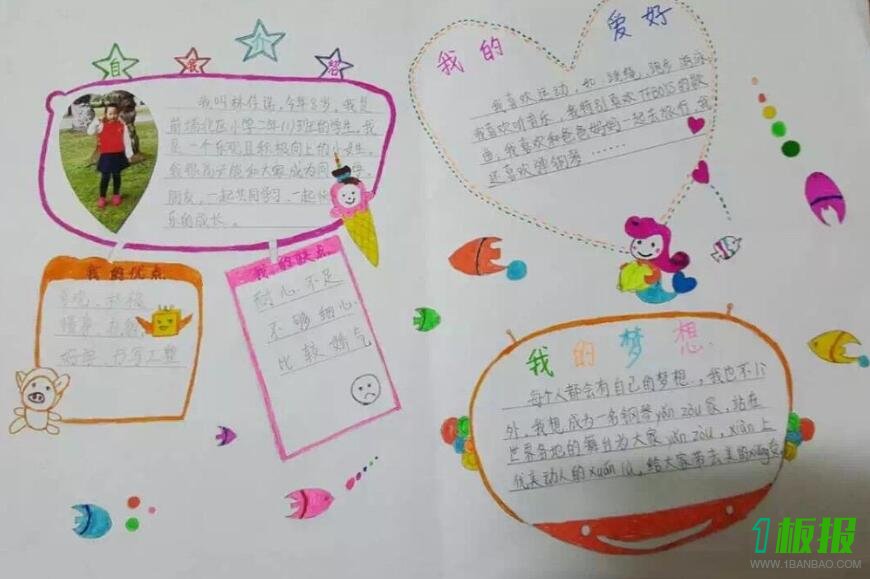 自我介绍
我叫林佳诺，今年8岁，我是
前埔北区小学二年(1)班的学生。我
是一个乐观且积极向上的小女生。
我很高兴能和大家成为同
朋友，一起共同学习、一起
乐的成长。
我的优点
懂事、
好学、书写工整
我的缺点
耐心不足
不够细心
比较娇气
我的爱好
我喜欢运动，如：跳绳，跑步，游泳
我喜欢听音乐，我特别喜欢TFBOYS的歌
曲，我喜欢和爸爸妈妈一起去旅行，我
还喜欢弹钢琴……
我的梦想
每个人都会有自己的梦想，我也不例
外，我想成为一名钢琴yǎn zòu家，站在
世界各地的舞台为大家yǎn zòu，xiàn上
优美动人的xuán lǜ，给大家带去美的xiǎng受
1板报
WWW.1BANBAO.COM